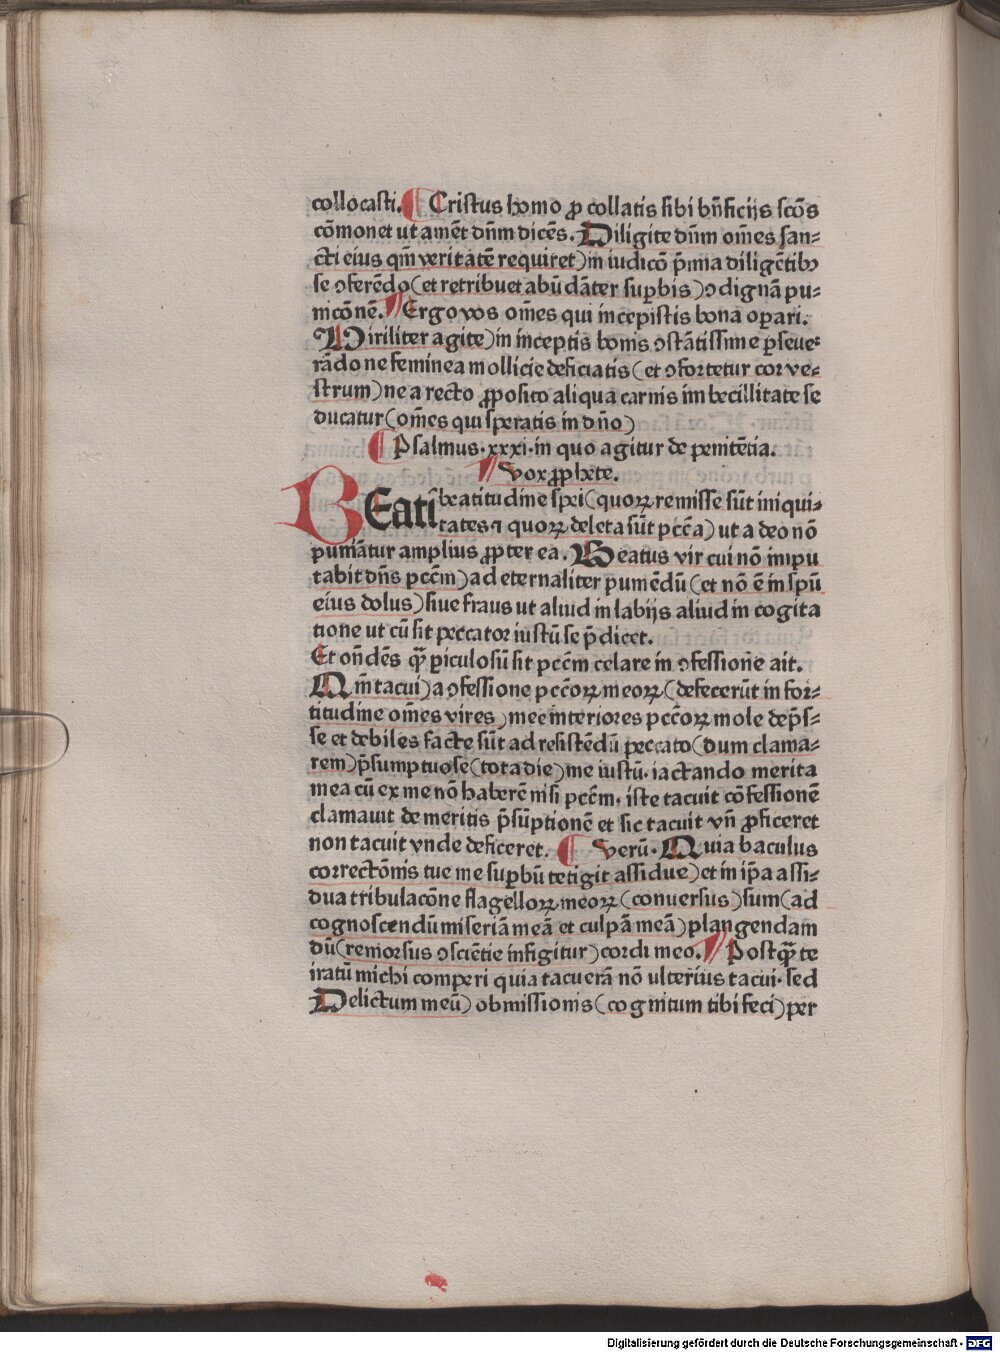 collocasti. ¶ Cristus homo ꝓ collatis sibi bn̄ficijs scōs
cōmonet ut amēt dn̄m dicēs. Diligite dn̄m om̄es san⸗
cti eius qm̄ veritatē requiret) in iudicō p̄mia diligētibꝫ
se ꝯferēdo (et retribuet abūdāter suꝑbis) ꝯdignā pu⸗
nicōnē. ¶ Ergo vos om̄es qui incepistis bona oꝑari.
Viriliter agite) in inceptis bonis ꝯstātissime ꝑseue⸗
rādo ne feminea mollicie deficiatis (et ꝯfortetur cor ve⸗
strum) ne a recto ꝓposito aliqua carnis imbecillitate se
ducatur (om̄es qui speratis in dn̄o)
¶ Psalmus .xxxi. in quo agitur de penitētia.
¶ Vox ꝓphete.
BEati beatitudine spei (quoꝝ remisse sūt iniqui⸗
tates ⁊ quoꝝ deleta sūt pccā) ut a deo nō
puniātur amplius ꝓpter ea. Beatus vir cui nō impu
tabit dn̄s pccm̄) ad eternaliter puniēdū (et nō ē in spū
eius dolus) siue fraus ut aliud in labijs aliud in cogita
tione ut cū sit peccator iustū se p̄dicet.
Et on̄dēs qꝫ̄ ꝑiculosū sit pccm̄ celare in ꝯfessione ait.
Qm̄ tacui) a ꝯfessione pccōꝝ meoꝝ (defecerūt in for⸗
titudine om̄es vires) mee interiores pccōꝝ mole dep̄s⸗
se et debiles facte sūt ad resistēdū peccato (dum clama⸗
rem) p̄sumptuose (tota die) me iustū. iactando merita
mea cū ex me nō haberē nisi pccm̄. iste tacuit cōfessionē
clamauit de meritis p̄sūptionē et sic tacuit vn̄ ꝓficeret
non tacuit vnde deficeret. ¶ Verū. Quia baculus
correctōnis tue me suꝑbū tetigit assidue) et in ip̄a assi⸗
dua tribulacōne flagelloꝝ meoꝝ (conuersus) sum (ad
cognoscendū miseriā meā et culpā meā) plangendam
dū (remorsus ꝯsciētie infigitur) cordi meo. ¶ Postqꝫ̄ te
iratū michi comperi quia tacuerā nō ulterius tacui. sed
Delictum meū) obmissionis (cognitum tibi feci) per
Digitalisierung gefördert durch die Deutsche Forschungsgemeinschaft - DFG